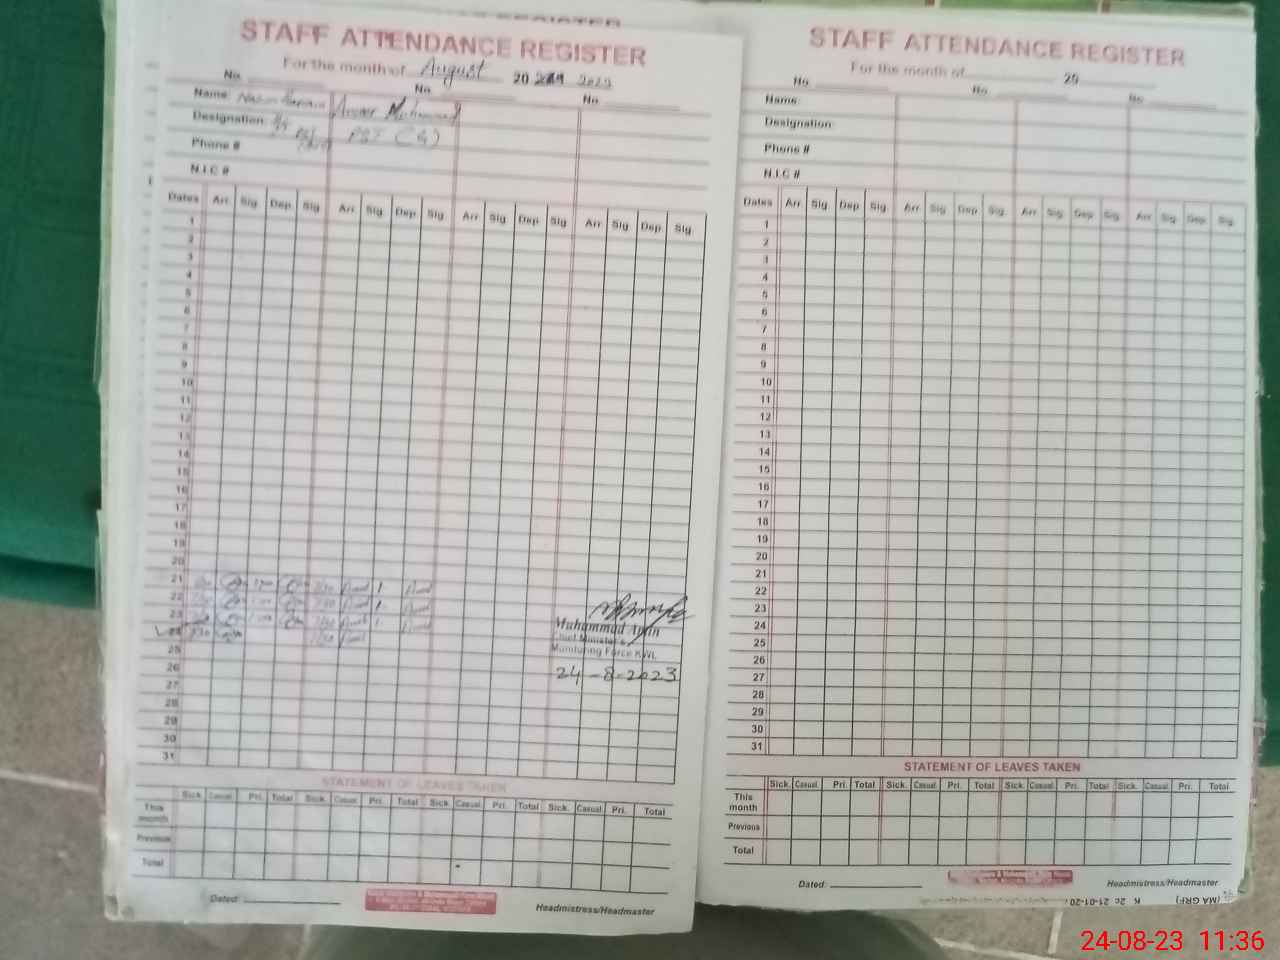 STAFF ATTENDANCE REGISTER
For the month of August 20 2023
No. No. No.
Name: Anwar Muhammad
Designation: PST (G)
Phone #
N.I.C #
Dates Arr. Sig. Dep. Sig. Arr. Sig. Dep. Sig. Arr. Sig. Dep. Sig. Arr. Sig. Dep. Sig.
1
2
3
4
5
6
7
8
9
10
11
12
13
14
15
16
17
18
19
20
21
22
23
24
25
26
27
28
29
30
31
Muhammad Amin
Chief Minister's
Monitoring Force
24-8-2023
STATEMENT OF LEAVES TAKEN
Sick. Casual. Pri. Total Sick. Casual. Pri. Total Sick. Casual. Pri. Total Sick. Casual. Pri. Total
This month
Previous
Total
Dated:
Headmistress/Headmaster
STAFF ATTENDANCE REGISTER
For the month of 20
No. No. No.
Name:
Designation:
Phone #
N.I.C #
Dates Arr. Sig. Dep. Sig. Arr. Sig. Dep. Sig. Arr. Sig. Dep. Sig. Arr. Sig. Dep. Sig.
1
2
3
4
5
6
7
8
9
10
11
12
13
14
15
16
17
18
19
20
21
22
23
24
25
26
27
28
29
30
31
STATEMENT OF LEAVES TAKEN
Sick. Casual. Pri. Total Sick. Casual. Pri. Total Sick. Casual. Pri. Total Sick. Casual. Pri. Total
This month
Previous
Total
Dated:
Headmistress/Headmaster
24-08-23 11:36